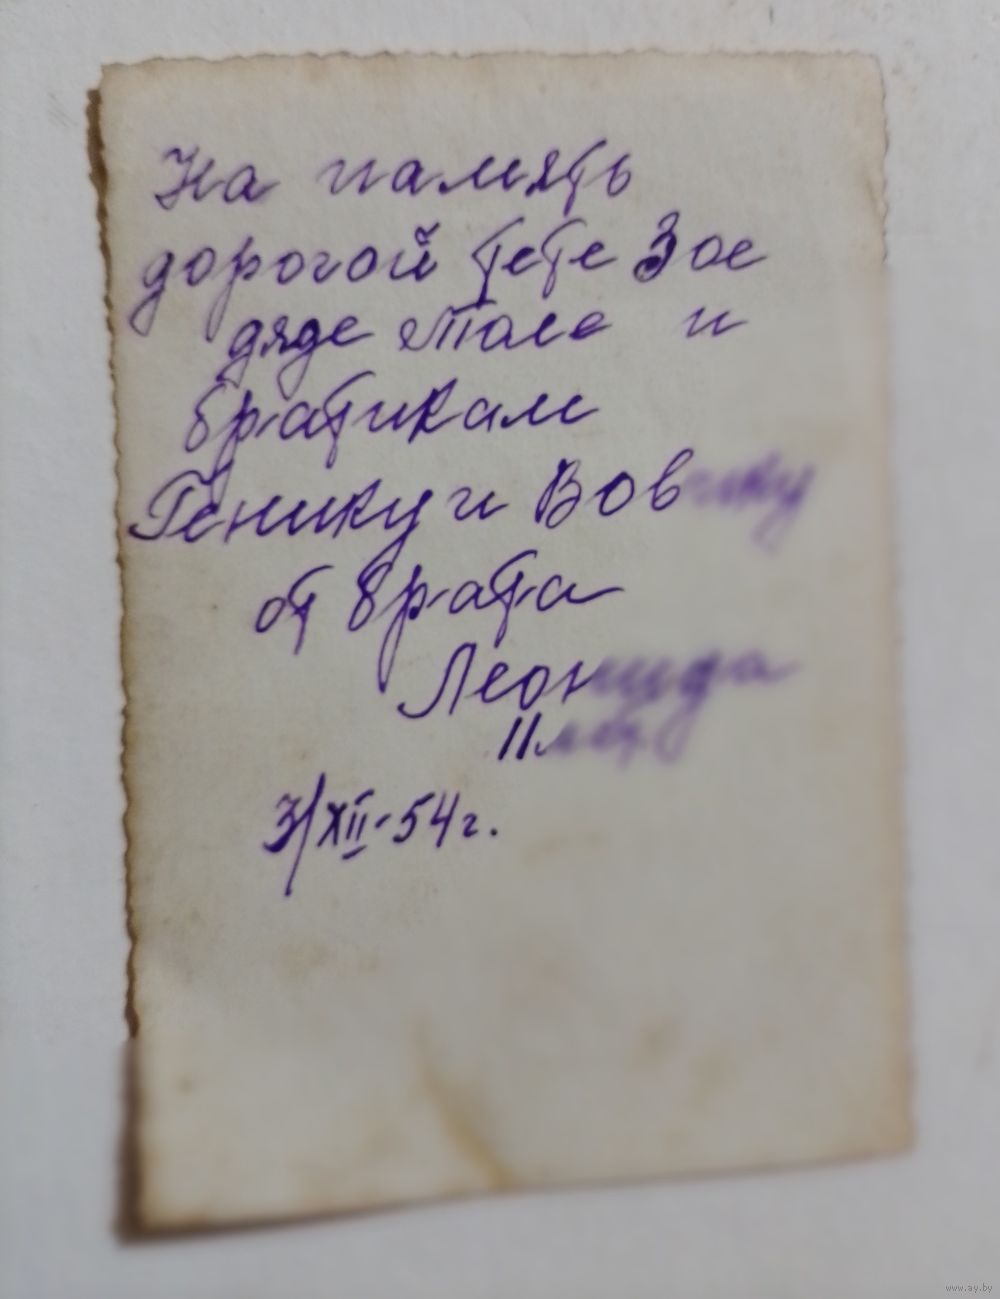 На память
дорогой тете Зое
дяде Толе и
братикам
Генику и Вовчику
от брата
Леонида
11 лет
3/XII-54г.
www.ay.by